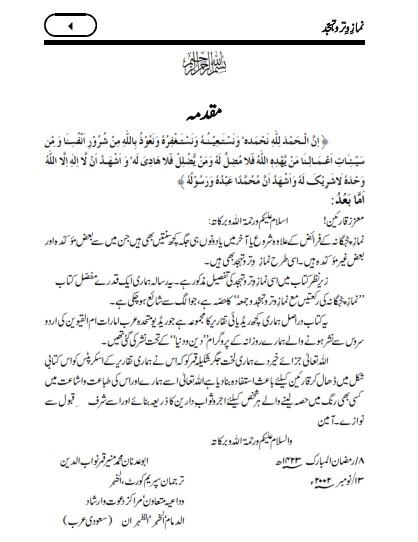 نمازِ وتر و تہجد
بسم اللہ الرحمن الرحیم
مقدمہ
﴿ اِنَّ الْـحَمْدَ لِلّٰهِ نَحْمَدُه، وَنَسْتَعِيْنُـهُ وَنَسْتَغْفِرُهُ وَنَعُوْذُ بِاللّٰهِ مِنْ شُرُوْرِ اَنْفُسِنَا وَ مِنْ
سَيِّـئَاتِ اَعْمَـالِنَا مَنْ يَّهْدِهِ اللّٰهُ فَلَا مُضِلَّ لَهُ وَمَنْ يُّضْلِلْ فَلَا هَادِىَ لَه، وَ اَشْهَدُ اَنْ لَّا اِلٰهَ اِلَّا اللّٰهُ
وَحْدَهُ لَاشَرِيْكَ لَهُ وَاَشْهَدُ اَنَّ مُحَمَّدًا عَبْدُهُ وَرَسُوْلُهُ ﴾
اَمَّا بَعْدُ:
معزز قارئین! السلام علیکم ورحمۃ اللہ و برکاتہ:
نمازِ پنجگانہ کے فرائض کے علاوہ شروع یا آخر میں یا دونوں ہی جگہ کچھ سنتیں بھی ہیں جن میں سے بعض مؤکدہ اور
بعض غیر مؤکدہ ہیں۔ اسی طرح نمازِ وتر و تہجد بھی ہیں۔
زیرِ نظر کتاب میں اسی نمازِ وتر و تہجد کی تفصیل مذکور ہے۔ یہ رسالہ ہماری ایک قدرے مفصّل کتاب
’’نمازِ پنجگانہ کی رکعتیں مع نمازِ وتر و تہجد و جمعہ‘‘ کا حصّہ ہے، جو الگ سے شائع ہو چکی ہے۔
یہ کتاب دراصل ہماری کچھ ریڈیائی تقاریر کا مجموعہ ہے جو ریڈیو متحدہ عرب امارات ام القیوین کی اردو
سروس سے نشر ہونے والے ہمارے روزانہ کے پروگرام ’’دین و دنیا‘‘ کے تحت نشر کی گئی تھیں۔
اللہ تعالیٰ جزائے خیر دے ہماری لختِ جگر شکیلہ قمر کو کہ اس نے ہماری تقاریر کے اسکرپٹس کو اس کتابی
شکل میں ڈھال کر قارئین کیلئے باعثِ استفادہ بنا دیا ہے اللہ تعالیٰ اسے ہمارے اور اس کی طباعت و اشاعت میں
کسی بھی رنگ میں حصہ لینے والے ہر شخص کیلئے اجر و ثوابِ دارین کا ذریعہ بنائے اور اسے شرفِ قبول سے
نوازے۔ آمین
والسلام علیکم ورحمۃ اللہ وبرکاتہ
۸/رمضان المبارک ۱۴۲۳ھ ابو عدنان محمد منیر قمر نواب الدین
۱۳/نومبر ۲۰۰۲ء ترجمان سپریم کورٹ، الخبر
وداعیہ متعاون مراکز دعوت و ارشاد
الدمام، الخبر، الظہران (سعودی عرب)